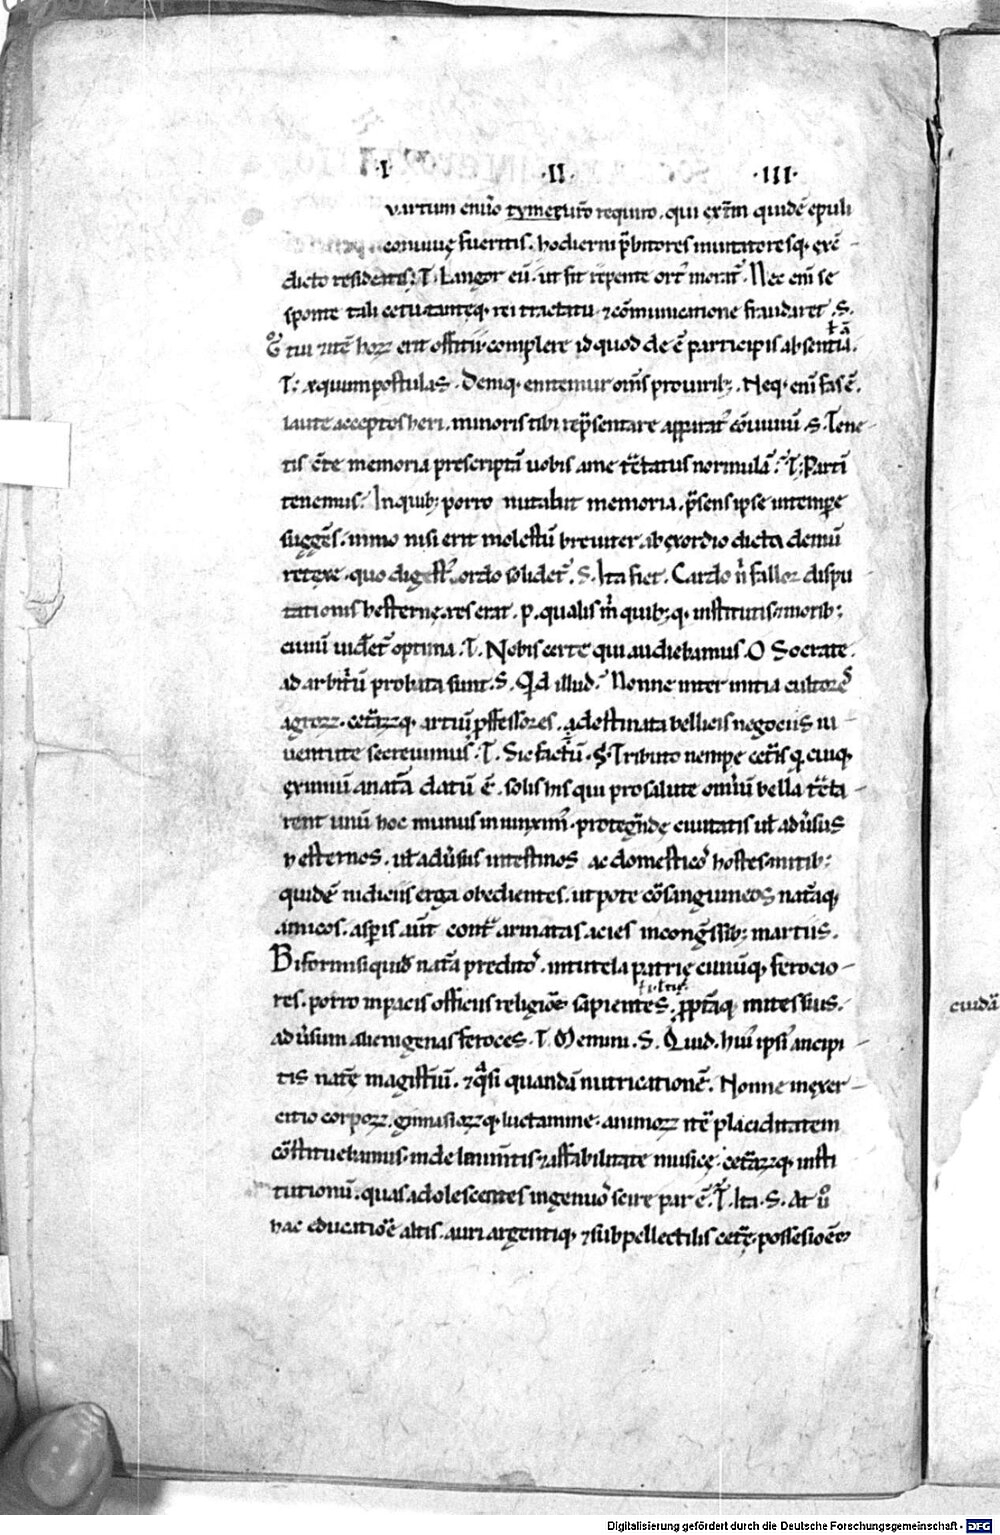 ·I· ·II· ·III·
uartum enūo tymeʒuīo requiro. qui ex̄tm quidē epuli
conuiuę fueritis. hodierni p̄bitores inuitatoresq· exē
dicto residentis? T. Langor eū. ut fit repente ort᷒ morat᷒. Nec eni se
sponte tali cetu tantęq· rei tractatu ⁊ cōmunicatione fraudaret. S.
tui ⁊ itē hoꝝ erit offitii complere id quod de ē participis absentiā.
T. Æquum postulas. Deniq· enitemur om̄s pro uirib;. Neq· eni fas ē.
laute acceptos heri. minoris tibi rep̄sentare apparat᷒ cōuiuiū. S. Tene
tis c̄te memoria prescriptā uobis a me t̄ctatus normulā? T. Parti
tenemus. In quib; porro nutabit memoria. p̄sens ipse intempe
sugḡes. immo nisi erit molestū breuiter ab exordio dicta demū
retexe. quo digest᷒ ordo solidet᷒. S. Ita fiet. Cardo n̄ fallor dispu
tationis hesternę. res erat. p. qualis m̄ quib; q· institutis ⁊ morib;
ciuiū uideret᷒ optima. T. Nobis certe qui audiebamus. O Socrate.
ad arbitriū probata sunt. S. Qd illud? Nonne inter initia cultores
agroꝝ. cet̄aꝝq· artiū p̄fessores. a destinata bellicis negociis iu
uentute secreuimus? T. Sic factū. S. Tributo nempe cet̄is q̄ cuiq·
eximiū a nat̄a datū ē. solis his qui pro salute omniū bella t̄cta
rent unū hoc munus iniunximus. protegende ciuitatis ul̄ aduersus
hesternos. ul̄ aduersus intestinos ac domesticos hostes. mitib;
quidē iudiciis erga obedientes. ut pote cōsanguineos nat̄aq·
amicos. asperis aut̄ cont̄ armatas acies in congressib; martiis.
Biformis iquid nat̄a preditos. in tutela patrię ciuiūq· ferocio
res. porro in pacis officiis religiōe sapientes. p̄pt̄aq· mites suis.
aduersum alienigenas feroces. T. Memini. S. Quid. hui᷒ ipsi᷒ ancipi
tis nat̄e magisteriū. ⁊ q̄si quandā nutricationē. Nonne in exer
citio corpoꝝ. gimnasioꝝq· luctamine. animoꝝ itē placiditatem
cōstituebamus. in delinimtis ⁊ affabilitate musicę. cet̄aꝝq· insti
tutionū. quas adolescentes ingenuos scire par ē? T. Ita. S. At uō
hac educatiōe altis. auri argentiq· ⁊ subpellectilis cet̄ę. possesiōem
cuidā
Digitalisierung gefördert durch die Deutsche Forschungsgemeinschaft - DFG